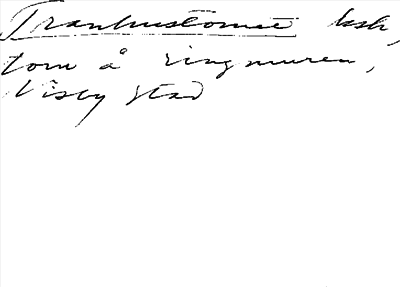 Tranhustornet bsh,
torn å ringmuren,
Visby stad